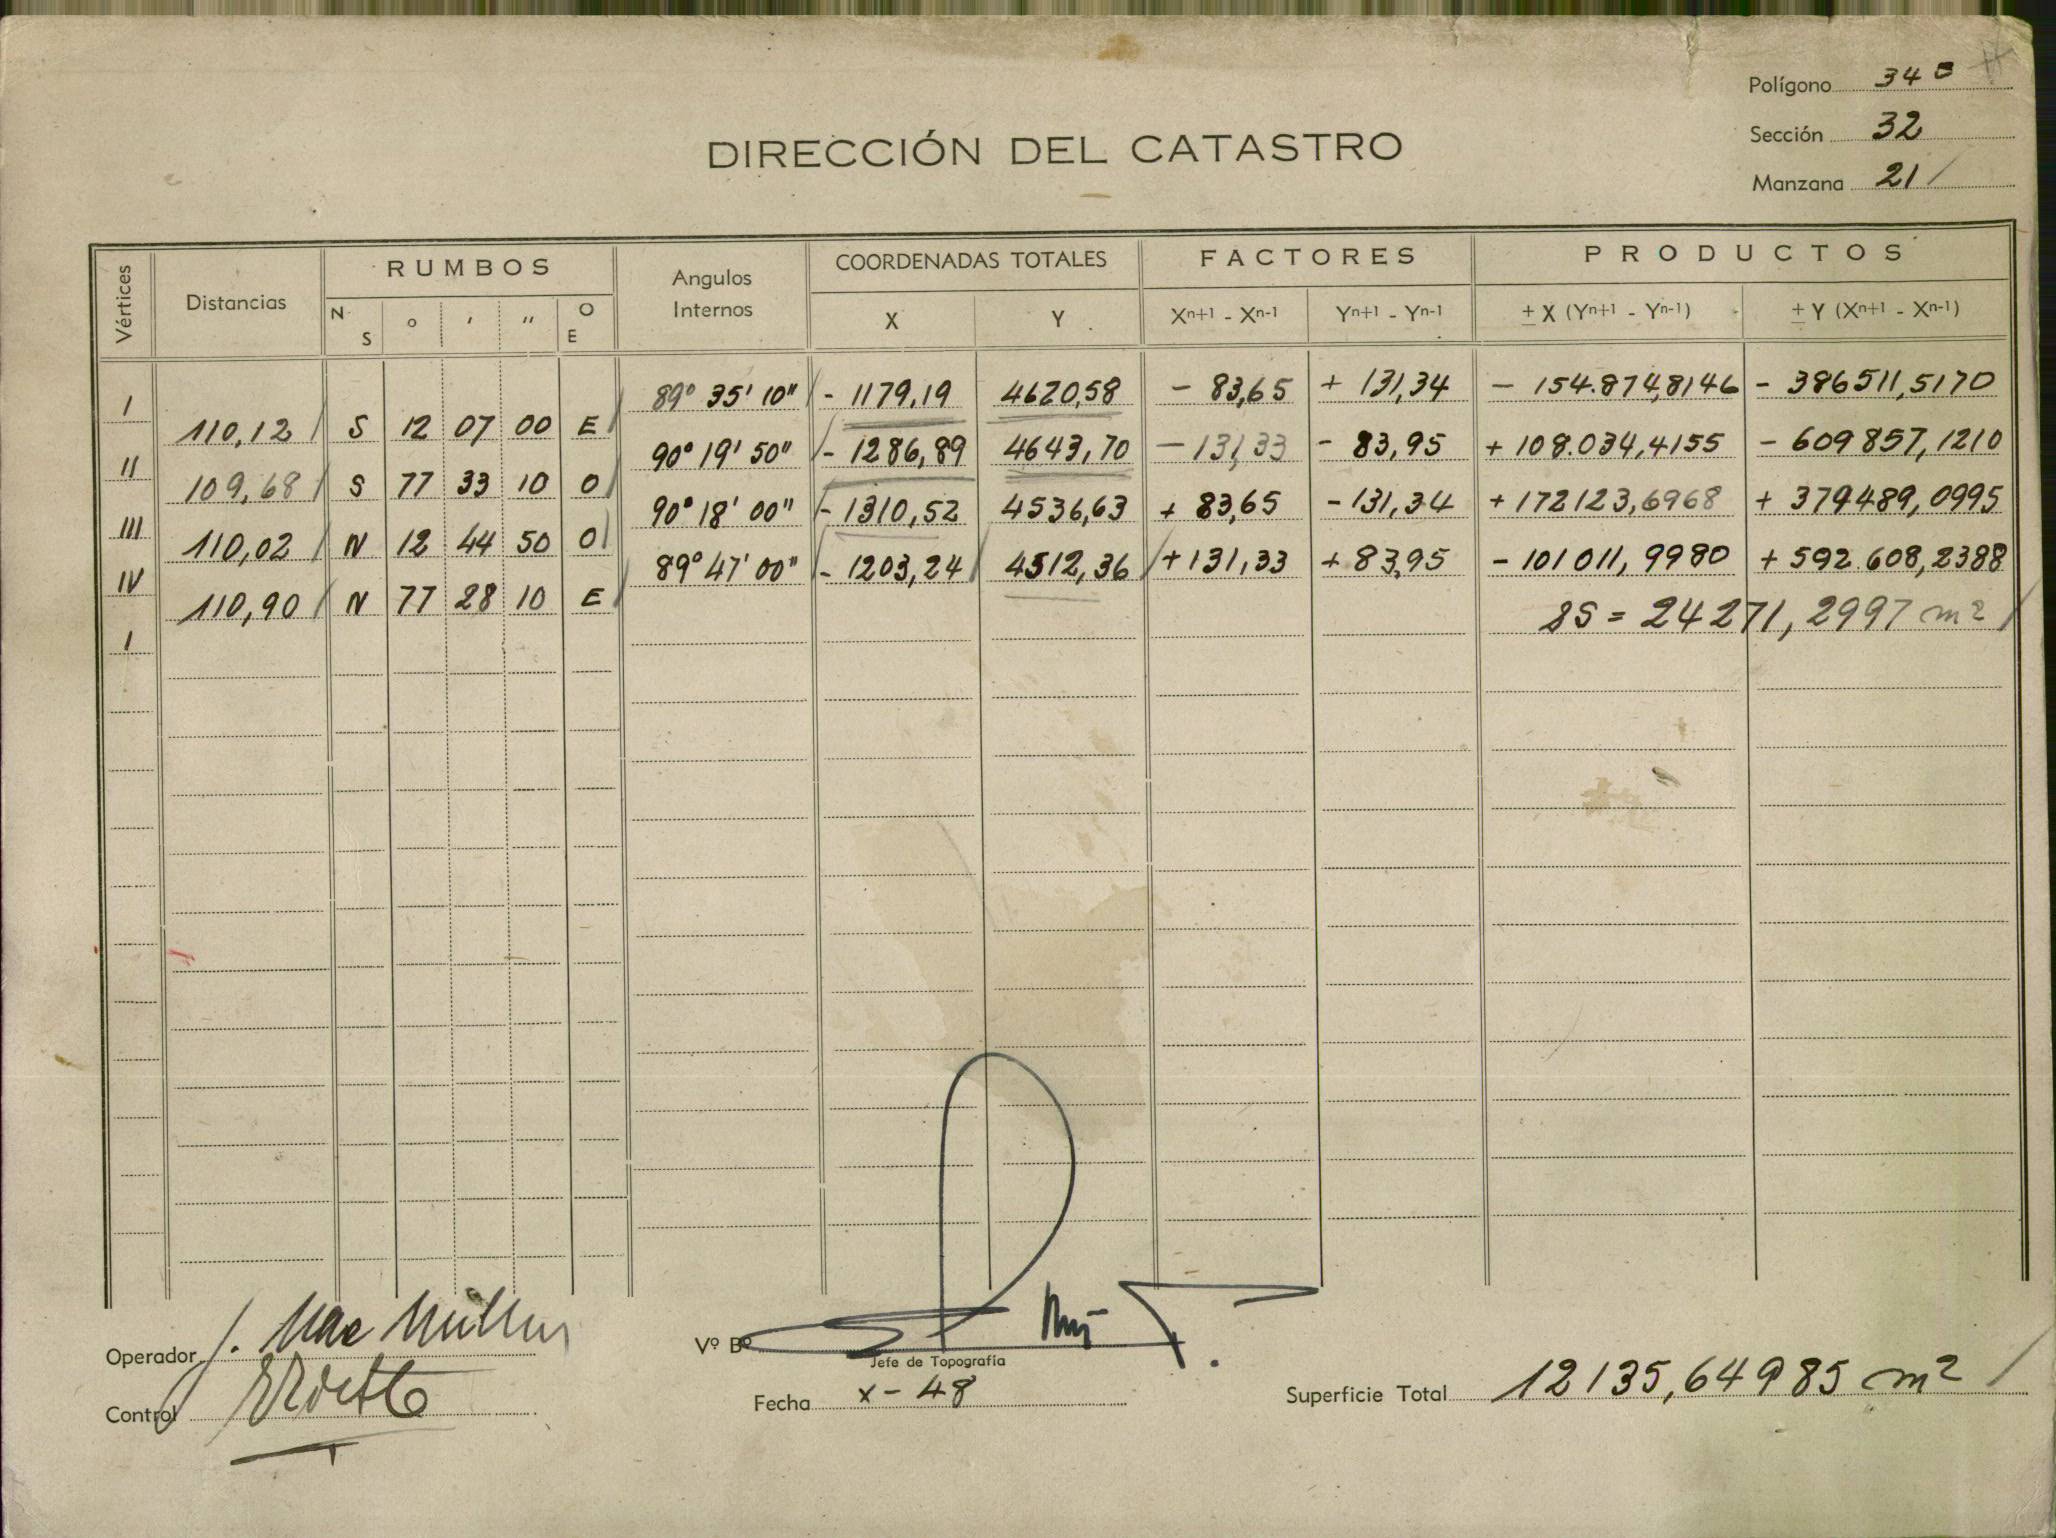 Polígono 34
Sección 32
Manzana 21 /
DIRECCIÓN DEL CATASTRO
Vértices Distancias RUMBOS Angulos Internos COORDENADAS TOTALES FACTORES PRODUCTOS
N S ° ' '' O E X Y Xn+1 - Xn-1 Yn+1 - Yn-1 ± X (Yn+1 - Yn-1) ± Y (Xn+1 - Xn-1)
I 89° 35' 10" - 1179,19 4620,58 - 83,65 + 131,34 - 154.874,8146 - 386511,5170
110,12 S 12 07 00 E
II 90° 19' 50" - 1286,89 4643,70 - 131,33 - 83,95 + 108.034,4155 - 609857,1210
109,68 S 77 33 10 O
III 90° 18' 00" - 1310,52 4536,63 + 83,65 - 131,34 + 172123,6968 + 379489,0995
110,02 N 12 44 50 O
IV 89° 47' 00" - 1203,24 4512,36 + 131,33 + 83,95 - 101011,9980 + 592.608,2388
110,90 N 77 28 10 E
2S = 24271,2997 m2 /
I
Operador J. Mac Millan
Vº Bº
Jefe de Topografía
Control
Fecha X - 48
Superficie Total 12135,64985 m2 /